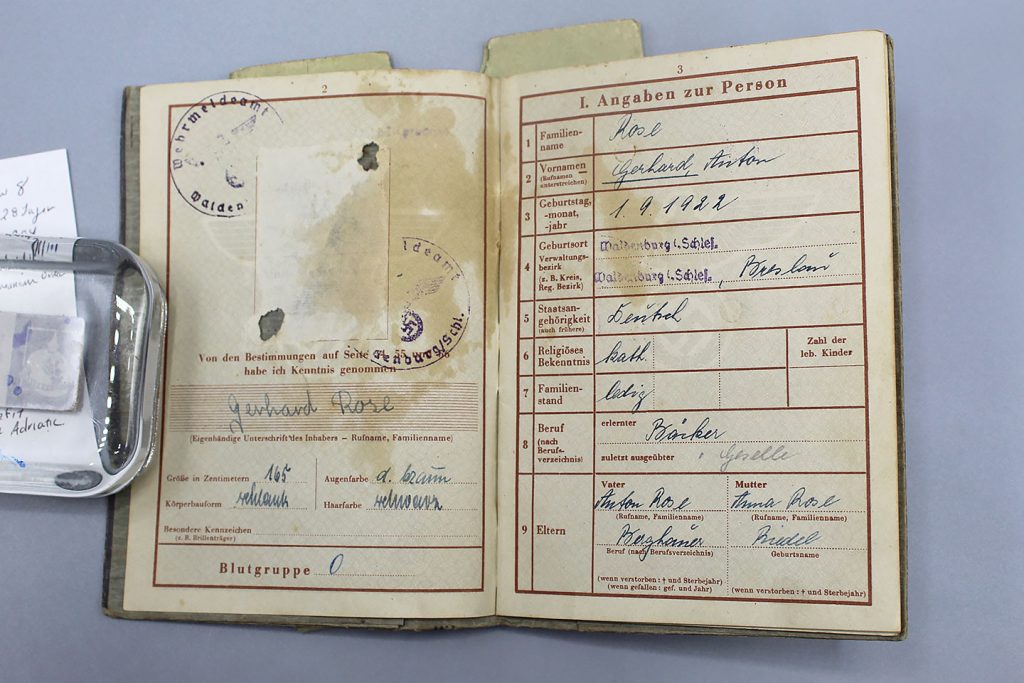 28 Jäger
Adriatic
2
Wehrmeldeamt
Walden
ldeamt
burg/Schl.
Von den Bestimmungen auf Seite 55
habe ich Kenntnis genommen
Gerhard Rose
(Eigenhändige Unterschrift des Inhabers – Rufname, Familienname)
Größe in Zentimetern 165 Augenfarbe d. braun
Körperbauform schlank Haarfarbe schwarz
Besondere Kennzeichen
(z. B. Brillenträger)
Blutgruppe 0
3
I. Angaben zur Person
1 Familien-
name Rose
2 Vornamen
(Rufnamen
unterstreichen) Gerhard, Anton
3 Geburtstag,
-monat,
-jahr 1. 9. 1922
4 Geburtsort Waldenburg i. Schles.
Verwaltungs-
bezirk
(z. B. Kreis,
Reg. Bezirk) Waldenburg i. Schles., Breslau
5 Staatsan-
gehörigkeit
(auch frühere) Deutsch
6 Religiöses
Bekenntnis kath.
Zahl der
leb. Kinder
7 Familien-
stand ledig
8 Beruf
(nach
Berufs-
verzeichnis)
erlernter Bäcker
zuletzt ausgeübter Geselle
9 Eltern
Vater
Anton Rose
(Rufname, Familienname)
Berghauer
Beruf (nach Berufsverzeichnis)
(wenn verstorben: † und Sterbejahr)
(wenn gefallen: gef. und Jahr)
Mutter
Anna Rose
(Rufname, Familienname)
Riedel
Geburtsname
(wenn verstorben: † und Sterbejahr)